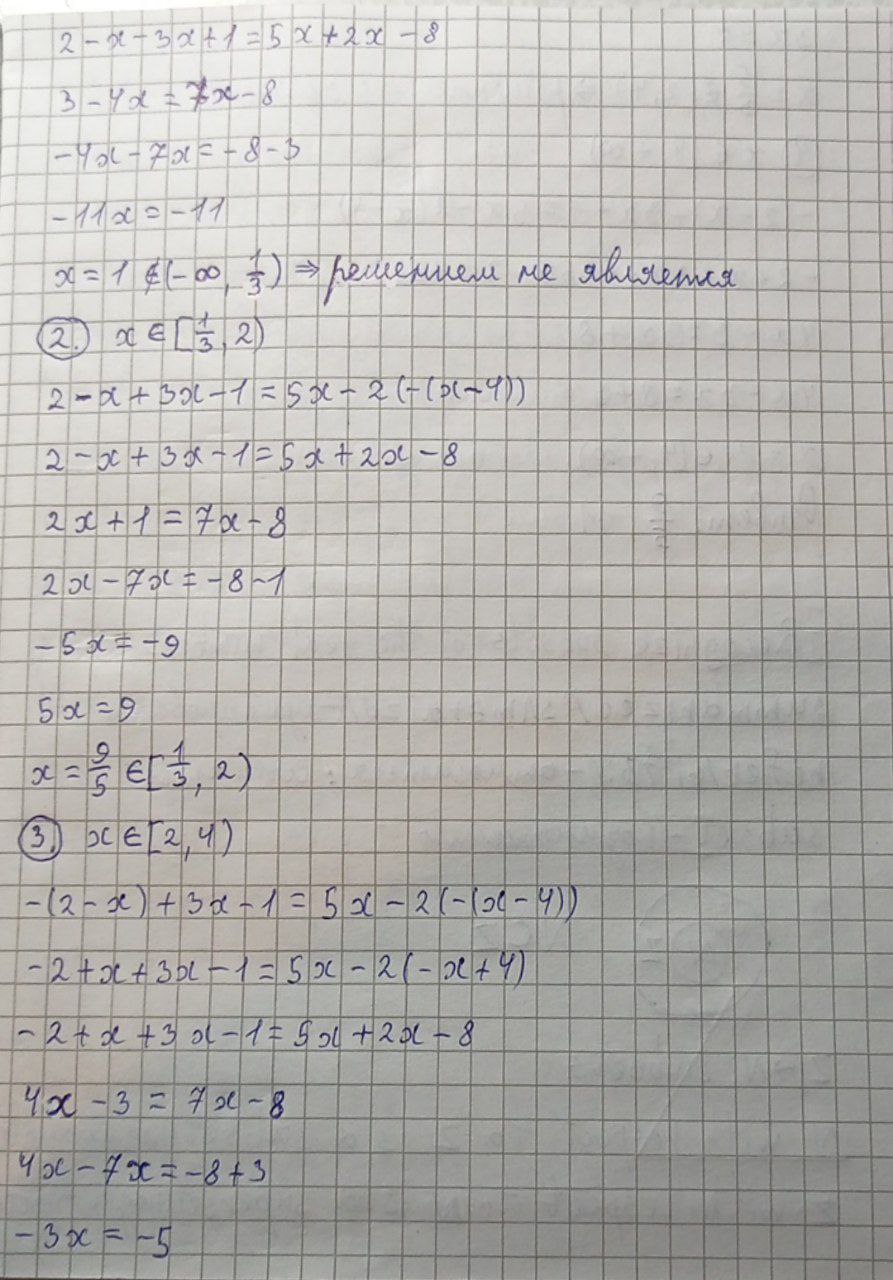 2 - x - 3x + 1 = 5x + 2x - 8
3 - 4x = 7x - 8
-4x - 7x = -8 - 3
-11x = -11
x = 1 ∉ (-∞, 1/3) ⇒ решением не является
2. x ∈ [1/3, 2)
2 - x + 3x - 1 = 5x - 2(-(x - 4))
2 - x + 3x - 1 = 5x + 2x - 8
2x + 1 = 7x - 8
2x - 7x = -8 - 1
-5x = -9
5x = 9
x = 9/5 ∈ [1/3, 2)
3. x ∈ [2, 4)
-(2 - x) + 3x - 1 = 5x - 2(-(x - 4))
-2 + x + 3x - 1 = 5x - 2(-x + 4)
-2 + x + 3x - 1 = 5x + 2x - 8
4x - 3 = 7x - 8
4x - 7x = -8 + 3
-3x = -5